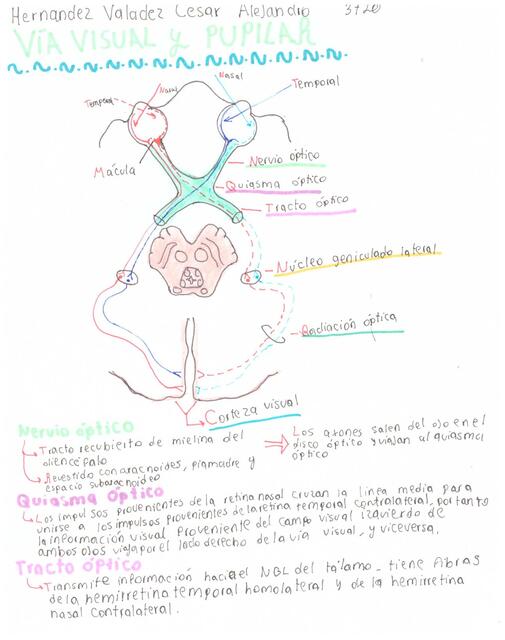 Hernandez Valadez Cesar Alejandro 3420
VÍA VISUAL Y PUPILAR
Nasal
Temporal
Nasal
Temporal
Mácula
Nervio óptico
Quiasma óptico
Tracto óptico
Núcleo geniculado lateral
Radiación óptica
Corteza visual
Nervio óptico
Tracto recubierto de mielina del
diencéfalo
Revestido con aracnoides, piamadre y
espacio subaracnoideo
Los axones salen del ojo en el
disco óptico y viajan al quiasma
óptico
Quiasma óptico
Los impulsos provenientes de la retina nasal cruzan la línea media para
unirse a los impulsos provenientes de la retina temporal contralateral, por tanto
la información visual proveniente del campo visual izquierdo de
ambos ojos viaja por el lado derecho de la vía visual, y viceversa.
Tracto óptico
Transmite información hacia el NGL del tálamo, tiene fibras
de la hemirretina temporal homolateral y de la hemirretina
nasal contralateral.